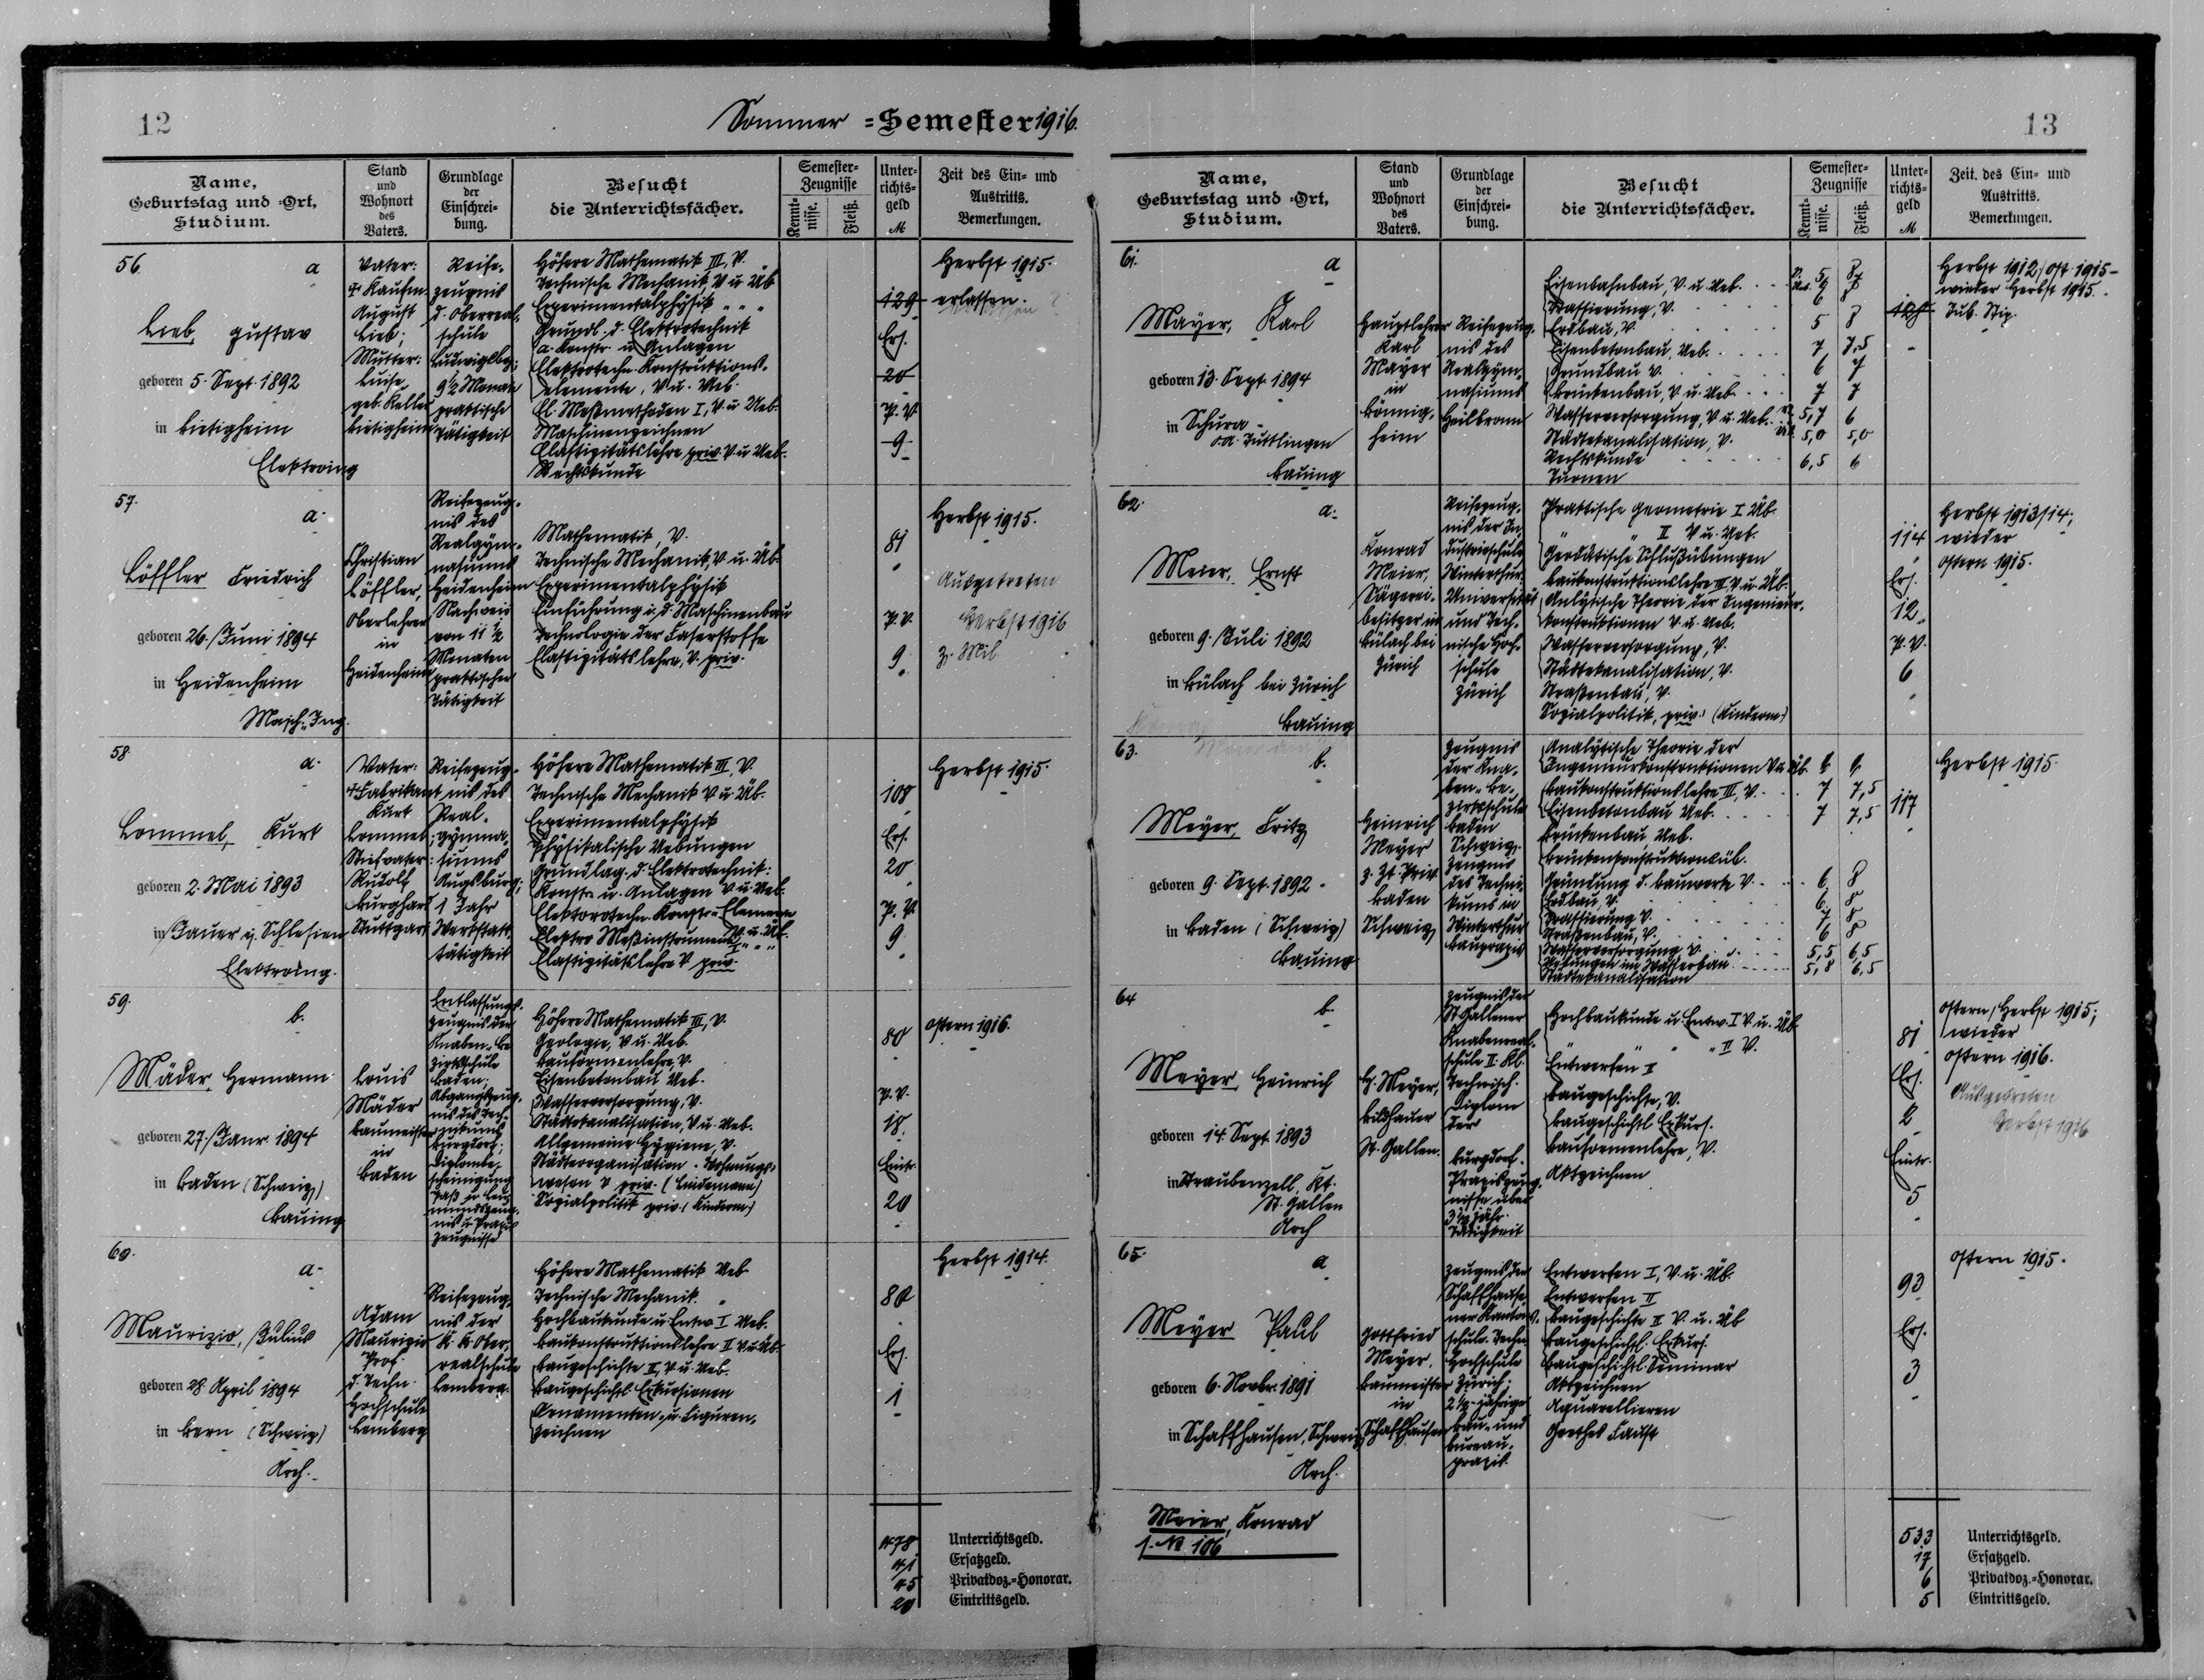 12
Sommer =Semester 1916.
Name,
Geburtstag und =Ort,
Studium.
Stand
und
Wohnort
des
Vaters.
Grundlage
der
Einschrei-
bung.
Besucht
die Unterrichtsfächer.
Semester-
Zeugnisse
Kennt-
nisse.
Fleiß.
Unter-
richts-
geld
M
Zeit des Ein- und
Austritts.
Bemerkungen.
56.
a
Lieb, Gustav
geboren 5. Sept. 1892
in Bietigheim
Elektroing
Vater:
† Kaufm.
August
Lieb;
Mutter:
Luise
geb. Keller
Bietigheim
Reife-
zeugnis
d. Oberreal-
schule
Ludwigsbg;
9½ Monate
praktische
Tätigkeit
Höhere Mathematik III, V.
Technische Mechanik, V u Üb
Experimentalphysik " "
Grundl. d. Elektrotechnik
a. Konstr. u Anlagen
Elektrotechn. Konstruktions-
elemente, V u. Ueb.
El. Meßmethoden I, V. u Ueb.
Maschinenzeichnen
Elastizitätslehre priv. V u Ueb.
Rechtskunde
129
Ers.
20
P. V.
9
Herbst 1915.
erlassen.
57.
a.
Löffler Friedrich
geboren 26. Juni 1894
in Heidenheim
Masch. Ing.
Christian
Löffler,
Oberlehrer
in
Heidenheim
Reifezeug-
nis des
Realgym-
nasiums
Heidenheim
Nachweis
von 11½
Monaten
praktischer
Tätigkeit
Mathematik, V.
Technische Mechanik, V u. Üb.
Experimentalphysik
Einführung i. d. Maschinenbau
Technologie der Faserstoffe
Elastizitätslehre, V. priv.
81
P. V.
9
Herbst 1915.
Ausgetreten
Herbst 1916
z. Mil
58
a.
Lommel, Kurt
geboren 2. Mai 1893
in Jauer i/ Schlesien
Elektroing.
Vater:
† Fabrikant
Kurt
Lommel;
Stiefvater:
Rudolf
Burghart
Stuttgart
Reifezeug-
nis des
Real-
gymna-
siums
Augsburg;
1 Jahr
Werkstatt-
tätigkeit
Höhere Mathematik III, V
Technische Mechanik V u. Üb.
Experimentalphysik
Physikalische Uebungen
Grundlag. d. Elektrotechnik:
Konstr. u. Anlagen V u. Ueb.
Elektrotechn. Konstr.-Elemente
V. u. Üb.
Elektr. Meßinstrumente I " "
Elastizitätslehre V priv.
108
Ers.
20
P. V.
9
Herbst 1915.
59.
b.
Mäder, Hermann
geboren 27. Janr. 1894
in Baden (Schweiz)
Bauing
Louis
Mäder
Baumeister
in
Baden
Entlassungs-
zeugnis der
Knaben-Be-
zirksschule
Baden;
Abgangszeug-
nis des Tech-
nikums
Burgdorf;
Diplombe-
scheinigung
Paß u Leu-
mundszeug-
nis u Praxis
zeugnisse
Höhere Mathematik III, V.
Geologie, V u. Ueb.
Bauformenlehre, V.
Eisenbetonbau Ueb.
Wasserversorgung, V.
Städtekanalisation, V u. Ueb.
Allgemeine Hygiene, V.
Städteorganisation. Wohnungs-
wesen V priv. (Lindemann)
Sozialpolitik priv. (Kinderm.)
80
P. V.
18
Eintr.
20
Ostern 1916.
60.
a.
Maurizio, Julius
geboren 28. April 1894
in Bern (Schweiz)
Arch.
Adam
Maurizio
Prof.
d. Techn.
Hochschule
Lemberg
Reifezeug-
nis der
K. K. Ober-
realschule
Lemberg.
Höhere Mathematik Ueb
Technische Mechanik. "
Hochbaukunde u. Entw. I Ueb.
Baukonstruktionslehre II V u. Üb.
Baugeschichte II, V. u. Ueb.
Baugeschichtl. Exkursionen
Ornamenten- u. Figuren-
zeichnen
80
Ers.
1
Herbst 1914.
478 Unterrichtsgeld.
41 Ersatzgeld.
45 Privatdoz.=Honorar.
20 Eintrittsgeld.
13
Name,
Geburtstag und =Ort,
Studium.
Stand
und
Wohnort
des
Vaters.
Grundlage
der
Einschrei-
bung.
Besucht
die Unterrichtsfächer.
Semester-
Zeugnisse
Kennt-
nisse.
Fleiß.
Unter-
richts-
geld
M
Zeit des Ein- und
Austritts.
Bemerkungen.
61.
a
Mayer, Karl
geboren 13. Sept. 1894
in Schura
O.A. Tuttlingen
Bauing
Hauptlehrer
Karl
Mayer
in
Bönnig-
heim
Reifezeug-
nis des
Realgym-
nasiums
Heilbronn
Eisenbahnbau, V. u. Ueb.
Trassierung, V. 6 8
Erdbau, V. 5 8
Eisenbetonbau, Ueb. 7 7,5
Grundbau V. 6 7
Brückenbau, V u. Ueb. 7 7
Wasserversorgung, V u. Ueb. 5,7 6
Städtekanalisation, V. 5,0 5,0
Rechtskunde 6,5 6
Turnen
Herbst 1912/Ost 1915-
wieder Herbst 1915.
Jub. Stip.
62.
a.
Meier, Ernst
geboren 9. Juli 1892
in Bülach bei Zürich
Bauing
Konrad
Meier,
Sägerei-
besitzer in
Bülach bei
Zürich
Reifezeug-
nis der In-
dustrieschule
Winterthur
Universität
und Tech-
nische Hoch-
schule
Zürich
Praktische Geometrie I Üb.
" " II V u. Ueb.
Geodätische Schlußübungen
Baukonstruktionslehre III, V. u. Üb.
Anlytische Theorie der Ingenieur-
konstruktionen V u. Ueb.
Wasserversorgung, V.
Städtekanalisation, V.
Straßenbau, V.
Sozialpolitik, priv. (Kinderm.)
114
Ers.
12
P. V.
6
Herbst 1913/14;
wieder
Ostern 1915.
63.
b.
Meyer, Fritz
geboren 9. Sept. 1892.
in Baden (Schweiz)
Bauing
Heinrich
Meyer
z. Zt. Priv.
Baden
Schweiz
Zeugnis
der Kna-
ben-Be-
zirksschule
Baden
Schweiz,
Zeugnis
des Techni-
kums in
Winterthur
Baupraxis
Analytische Theorie der
Ingenieurkonstruktionen V u Üb. 6 6
Baukonstruktionslehre III, V. 7 7,5
Eisenbetonbau Ueb. 7 7,5
Brückenbau, Ueb.
Brückenkonstruktionsüb.
Gründung d. Bauwerke V. 6 8
Erdbau, V. 6 8
Trassierung V. 7 8
Straßenbau, V. 6 8
Wasserversorgung V. 5,5 6,5
Uebungen im Wasserbau 5,8 6,5
Städtekanalisation
117
Herbst 1915.
64
b.
Meyer, Heinrich
geboren 14. Sept. 1893
in Straubenzell, Kt.
St. Gallen
Arch
H. Meyer,
Bildhauer
St. Gallen.
Zeugnis der
St. Gallener
Knabenreal-
schule II. Kl.
Technisch.
Diplom
der
Burgdorf.
Praxiszeug-
nisse über
3½ jähr.
Tätigkeit
Hochbaukunde u. Entw. I V. u. Üb.
" " " II V.
Entwerfen I
Baugeschichte, V.
Baugeschichtl Exkurs.
Bauformenlehre, V.
Aktzeichnen
81
Ers.
2
Eintr.
5
Ostern/Herbst 1915;
wieder
Ostern 1916.
Ausgetreten
Herbst 1916
65.
a
Meyer Paul
geboren 6. Novbr. 1891
in Schaffhausen, Schweiz
Arch.
Gottfried
Meyer,
Baumeister
in
Schaffhausen
Zeugnis der
Schaffhause-
ner Kantons-
schule. Techn.
Hochschule
Zürich;
2½-jährige
Bau- und
Bureau-
praxis.
Entwerfen I, V. u. Üb.
Entwerfen II
Baugeschichte II V. u. Üb
Baugeschichtl. Exkurs.
Baugeschichtl. Seminar
Aktzeichnen
Aquarellieren
Goethes Faust
93
Ers.
3
Ostern 1915.
Meier, Konrad
s. No 106
533 Unterrichtsgeld.
17 Ersatzgeld.
6 Privatdoz.=Honorar.
5 Eintrittsgeld.